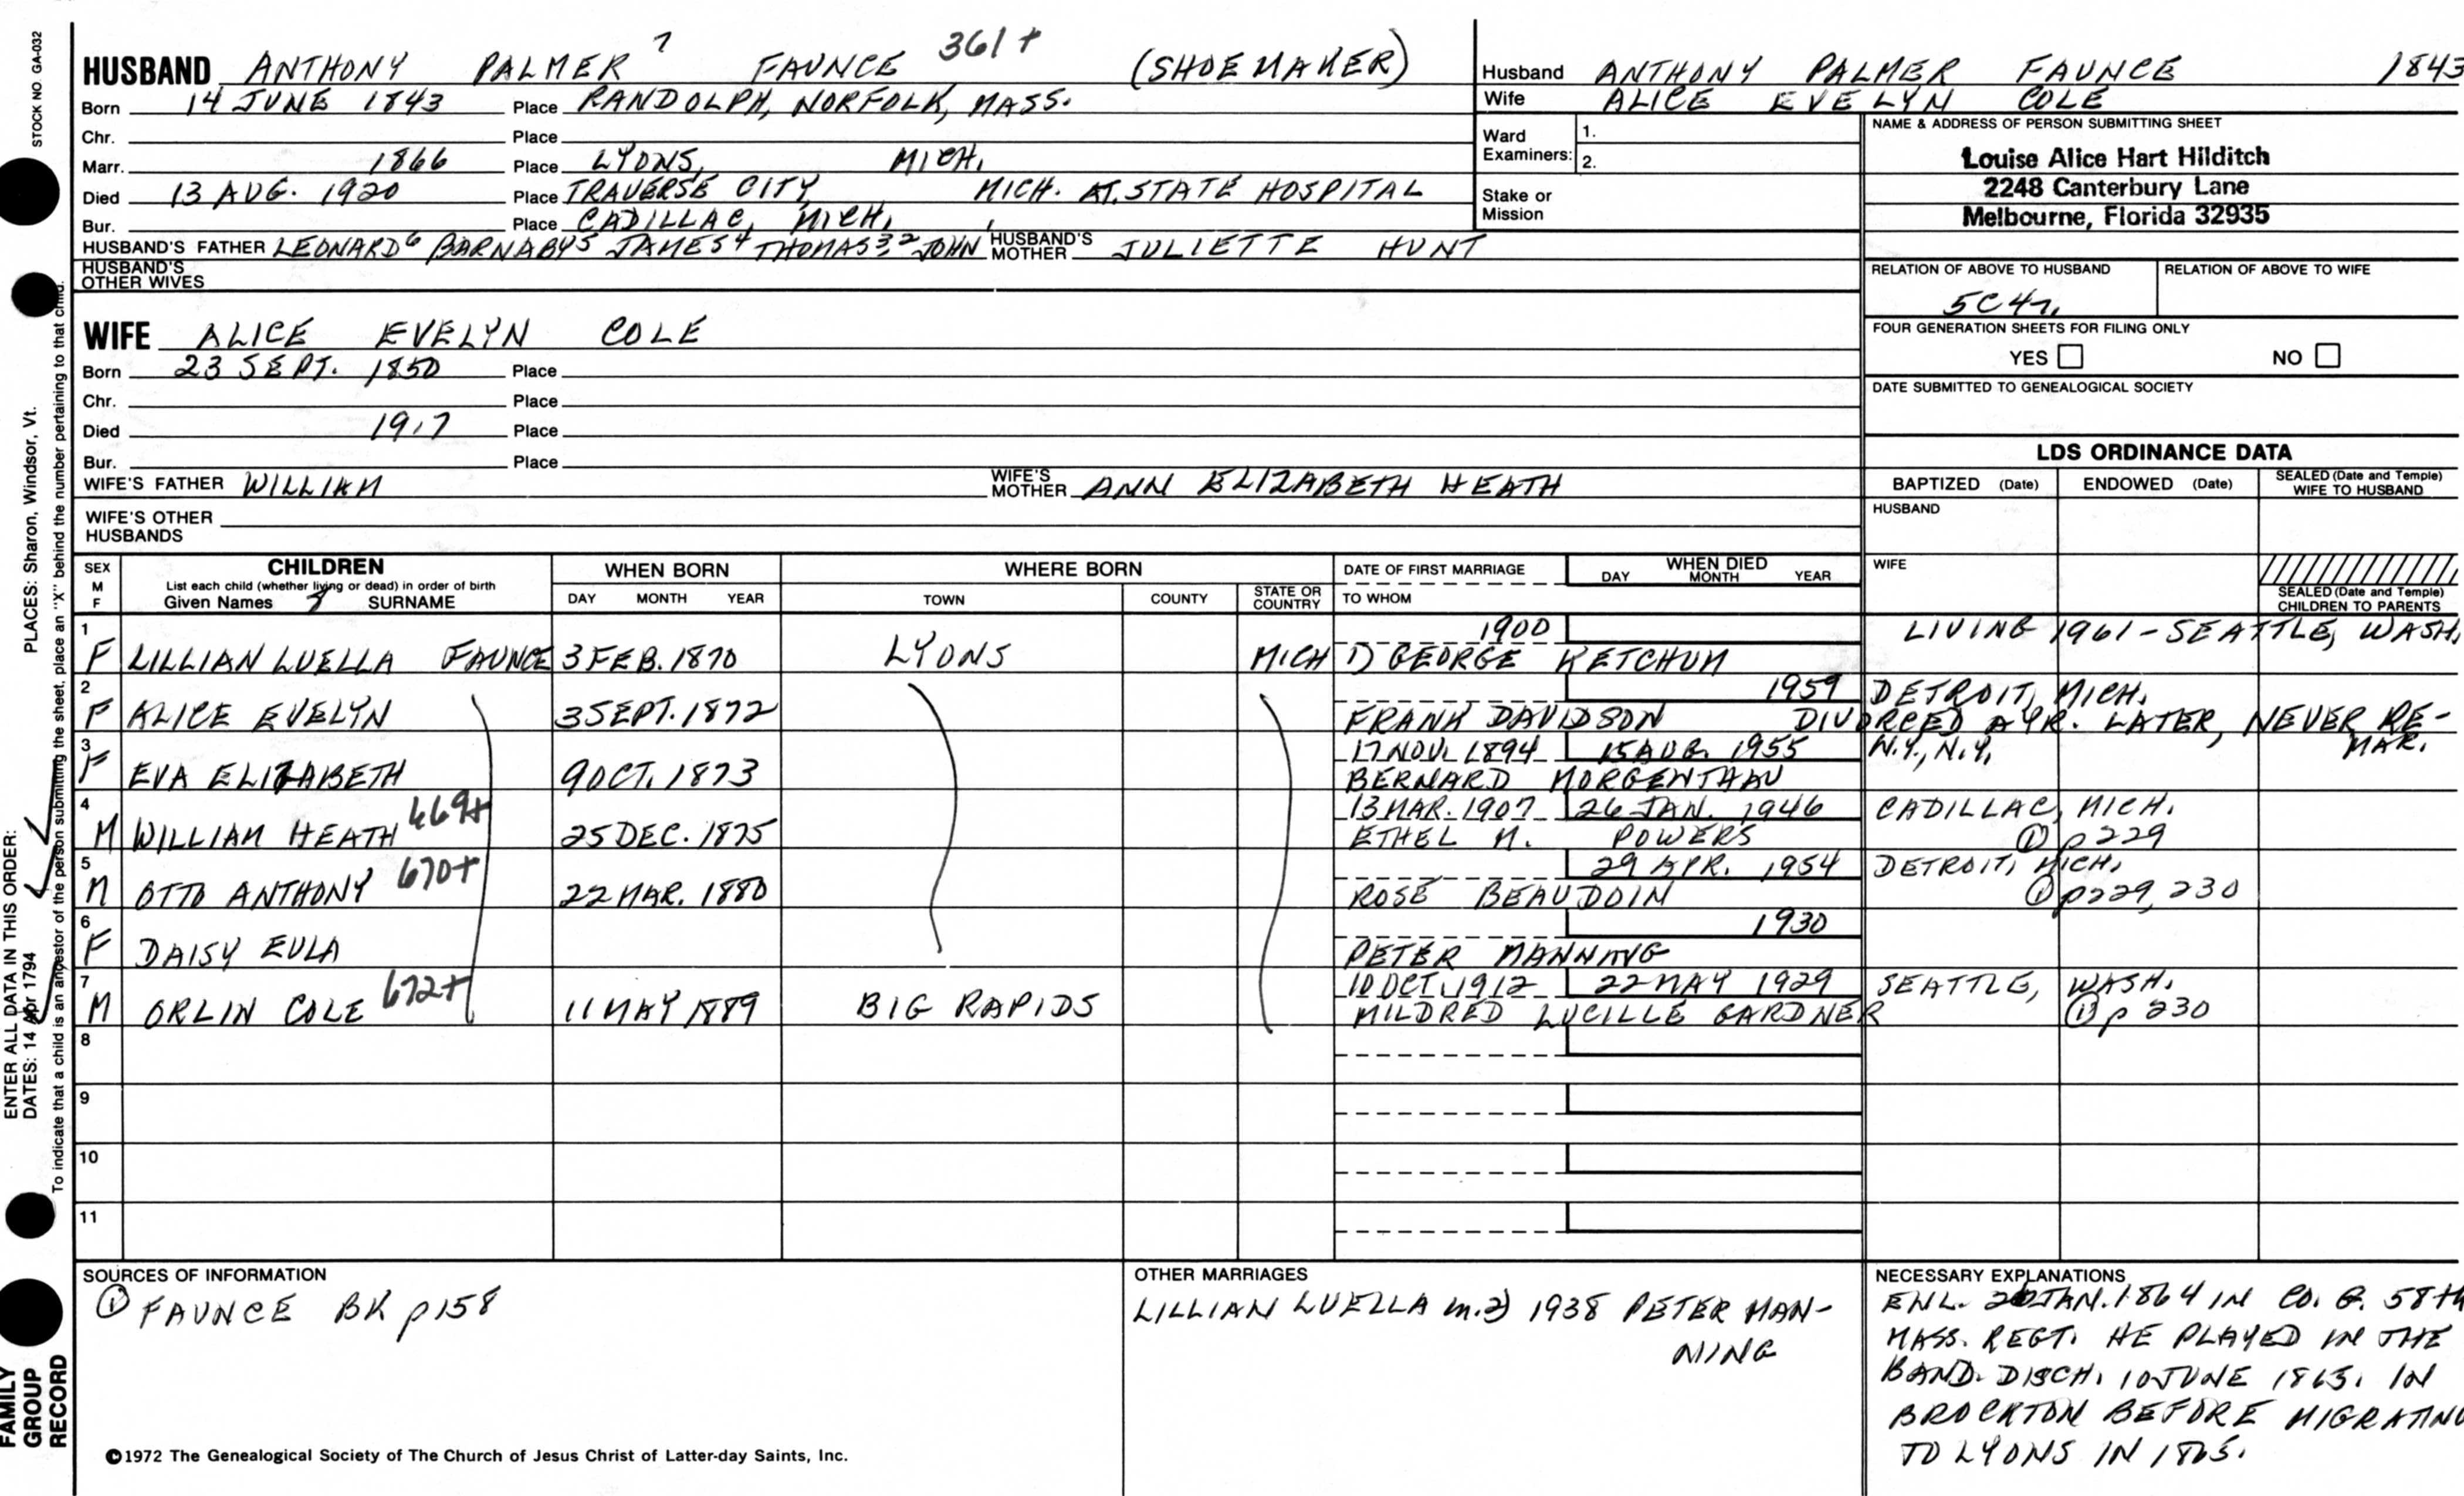 STOCK NO. GA-032
HUSBAND ANTHONY PALMER 7 FAUNCE 361+ (SHOEMAKER)
Born 14 JUNE 1843 Place RANDOLPH, NORFOLK, MASS.
Chr. Place
Marr. 1866 Place LYONS, MICH.
Died 13 AUG. 1920 Place TRAVERSE CITY, MICH. AT STATE HOSPITAL
Bur. Place CADILLAC, MICH.
HUSBAND'S FATHER LEONARD6 BARNABY5 JAMES4 THOMAS3,2 JOHN HUSBAND'S MOTHER JULIETTE HUNT
HUSBAND'S OTHER WIVES
WIFE ALICE EVELYN COLE
Born 23 SEPT. 1850 Place
Chr. Place
Died 1917 Place
Bur. Place
WIFE'S FATHER WILLIAM WIFE'S MOTHER ANN ELIZABETH HEATH
WIFE'S OTHER HUSBANDS
Husband ANTHONY PALMER FAUNCE 1843
Wife ALICE EVELYN COLE
Ward Examiners: 1.
2.
Stake or Mission
NAME & ADDRESS OF PERSON SUBMITTING SHEET
Louise Alice Hart Hilditch
2248 Canterbury Lane
Melbourne, Florida 32935
RELATION OF ABOVE TO HUSBAND RELATION OF ABOVE TO WIFE
5C4r.
FOUR GENERATION SHEETS FOR FILING ONLY
YES NO
DATE SUBMITTED TO GENEALOGICAL SOCIETY
LDS ORDINANCE DATA
BAPTIZED (Date) ENDOWED (Date) SEALED (Date and Temple) WIFE TO HUSBAND
HUSBAND
WIFE
SEALED (Date and Temple) CHILDREN TO PARENTS
SEX M F CHILDREN WHEN BORN WHERE BORN DATE OF FIRST MARRIAGE WHEN DIED
List each child (whether living or dead) in order of birth
Given Names SURNAME DAY MONTH YEAR TOWN COUNTY STATE OR COUNTRY TO WHOM DAY MONTH YEAR
1 1900 LIVING 1961 - SEATTLE, WASH.
F LILLIAN LUELLA FAUNCE 3 FEB. 1870 LYONS MICH 1) GEORGE KETCHUM
2 1959 DETROIT, MICH.
F ALICE EVELYN 3 SEPT. 1872 FRANK DAVIDSON DIVORCED A YR. LATER, NEVER RE-
MAR.
3 17 NOV. 1894 15 AUG. 1955 N.Y., N.Y.
F EVA ELIZABETH 9 OCT. 1873 BERNARD MORGENTHAU
4 13 MAR. 1907 26 JAN. 1946 CADILLAC, MICH.
M WILLIAM HEATH 669+ 25 DEC. 1875 ETHEL M. POWERS ① p229
5 29 APR. 1954 DETROIT, MICH.
M OTTO ANTHONY 670+ 22 MAR. 1880 ROSE BEAUDOIN ① p229, 230
6 1930
F DAISY EULA PETER MANNING
7 10 OCT. 1912 22 MAY 1929 SEATTLE, WASH.
M ORLIN COLE 672+ 11 MAY 1889 BIG RAPIDS MILDRED LUCILLE GARDNER ① p 230
8
9
10
11
SOURCES OF INFORMATION
① FAUNCE BK p158
OTHER MARRIAGES
LILLIAN LUELLA m. 2) 1938 PETER MAN-
NING
NECESSARY EXPLANATIONS
ENL. JAN. 1864 IN CO. G. 58th
MASS. REGT. HE PLAYED IN THE
BAND. DISCH. 10 JUNE 1865. IN
BROCKTON BEFORE MIGRATING
TO LYONS IN 1865.
©1972 The Genealogical Society of The Church of Jesus Christ of Latter-day Saints, Inc.
FAMILY GROUP RECORD
ENTER ALL DATA IN THIS ORDER:
DATES: 14 Apr 1794 PLACES: Sharon, Windsor, Vt.
To indicate that a child is an ancestor of the person submitting the sheet, place an "X" behind the number pertaining to that child.